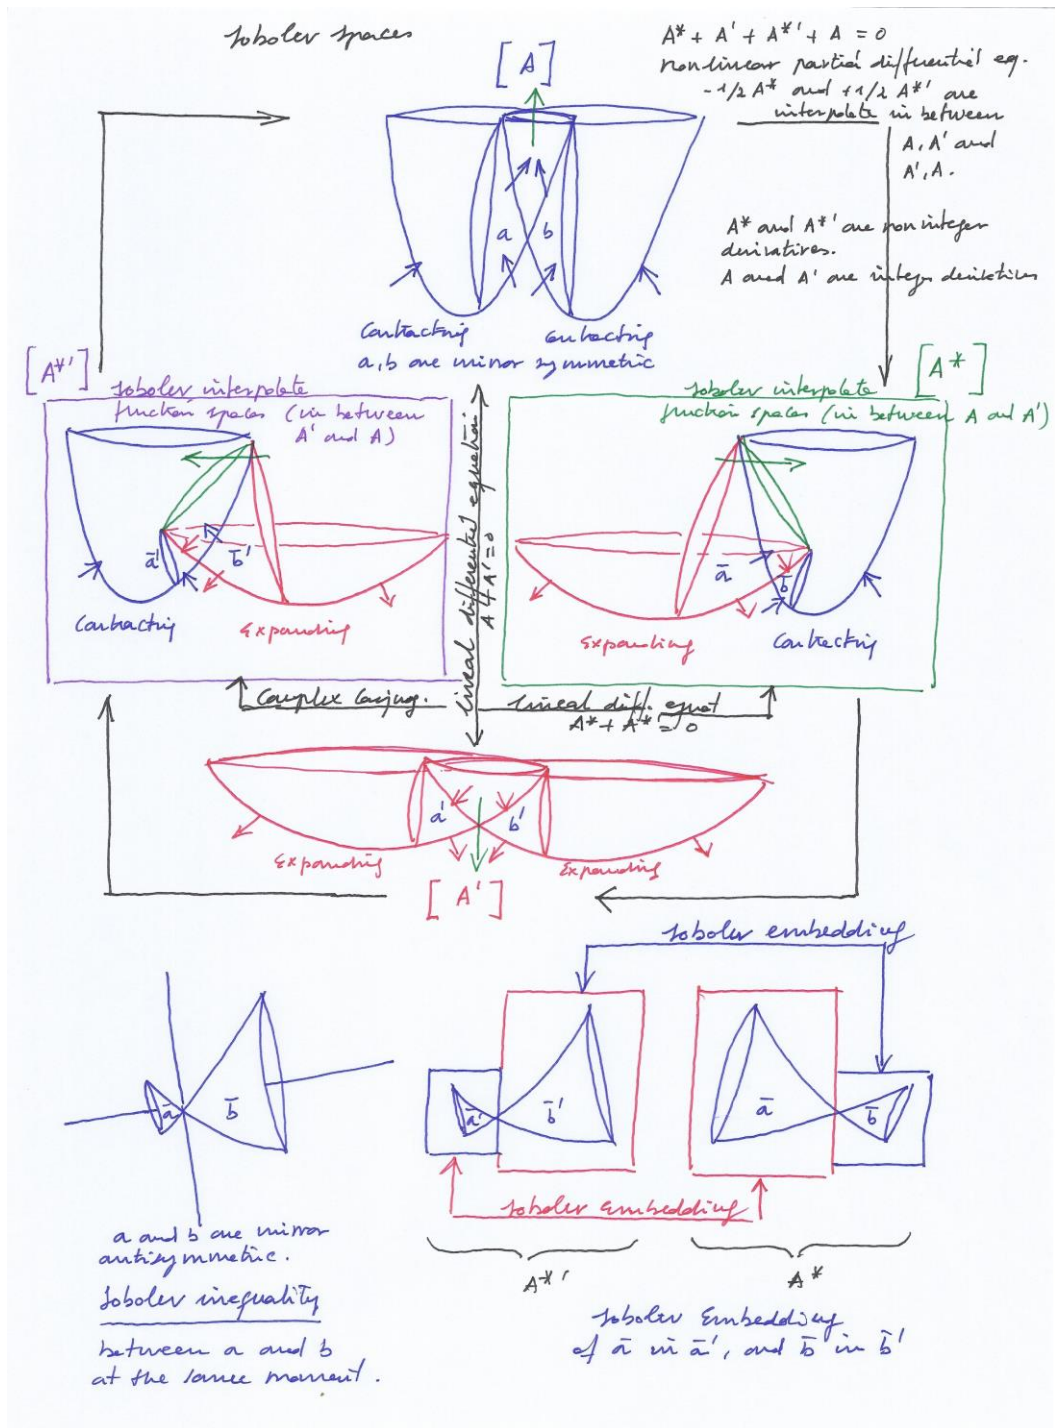 Sobolev spaces
A* + A' + A*' + A = 0
nonlinear partial differential eq.
-1/2 A* and +1/2 A*' are
interpolate in between
A, A' and
A', A.
[A]
A* and A*' are noninteger
derivatives.
A and A' are integer derivatives
a
b
Contracting
Contracting
a, b are mirror symmetric
[A*']
Sobolev interpolate
function spaces (in between
A' and A)
[A*]
Sobolev interpolate
function spaces (in between A and A')
lineal differential equation
A + A' = 0
ā'
b̄'
Contracting
Expanding
ā
b̄
Expanding
Contracting
Complex conjug.
lineal diff. equat
A* + A*' = 0
a'
b'
Expanding
Expanding
[A']
Sobolev embedding
ā
b̄
ā'
b̄'
ā
b̄
Sobolev embedding
a and b are mirror
antisymmetric.
Sobolev inequality
between a and b
at the same moment.
A*'
A*
Sobolev Embedding
of ā in ā', and b̄ in b̄'